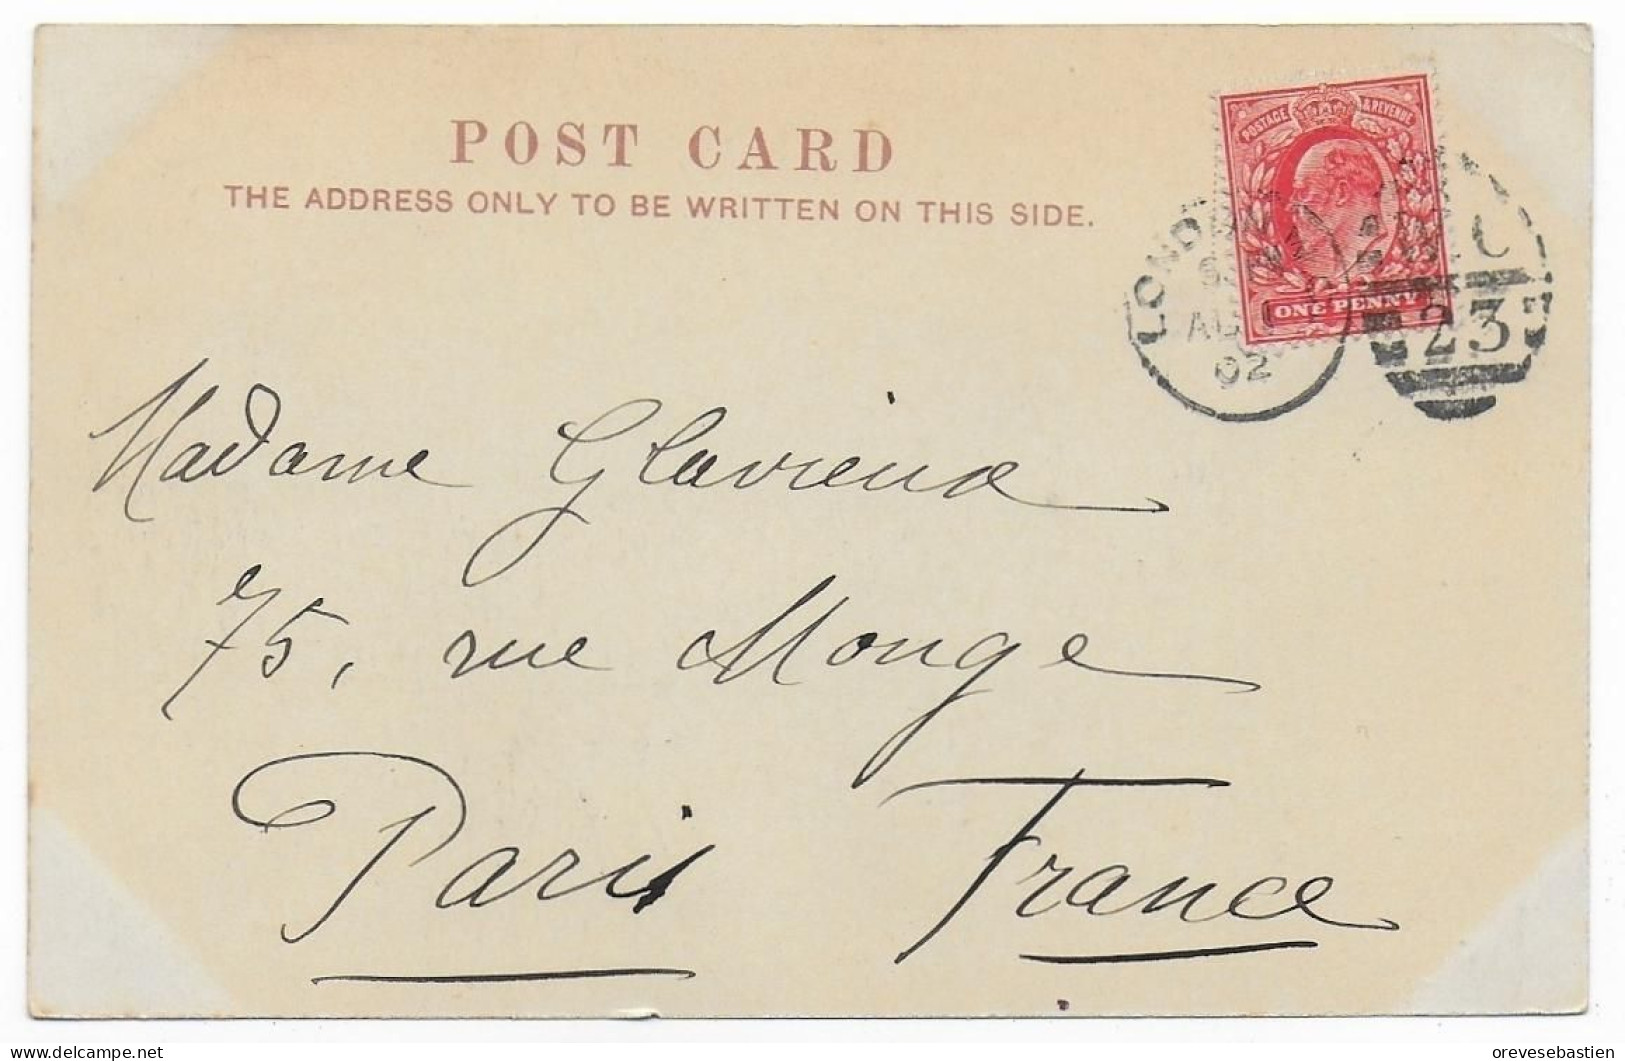 POST CARD
THE ADDRESS ONLY TO BE WRITTEN ON THIS SIDE.
POSTAGE & REVENUE
ONE PENNY
LONDON
02
23
Madame Glavieux
75, rue Monge
Paris France
www.delcampe.net
orevesebastien